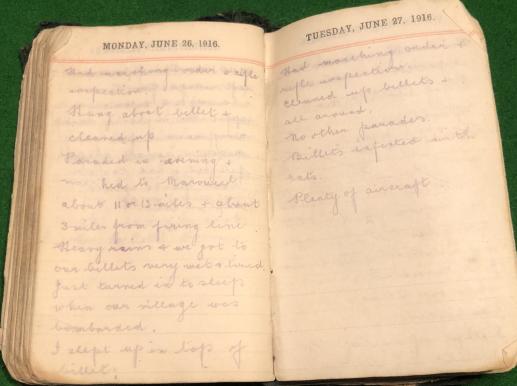 MONDAY, JUNE 26, 1916.
Had marching order & rifle
inspection.
Hung about billet &
cleaned up
Paraded in evening &
hed to
about 11 or 12 miles & about
3 miles from firing line
Heavy rains & we got to
our billets very wet & tired.
Just turned in to sleep
when our village was
bombarded.
I slept up in top of
billet.
TUESDAY, JUNE 27, 1916.
Had marching order &
rifle inspection.
Cleaned up billets &
all around.
No other parades.
Billets infested with
rats.
Plenty of aircraft